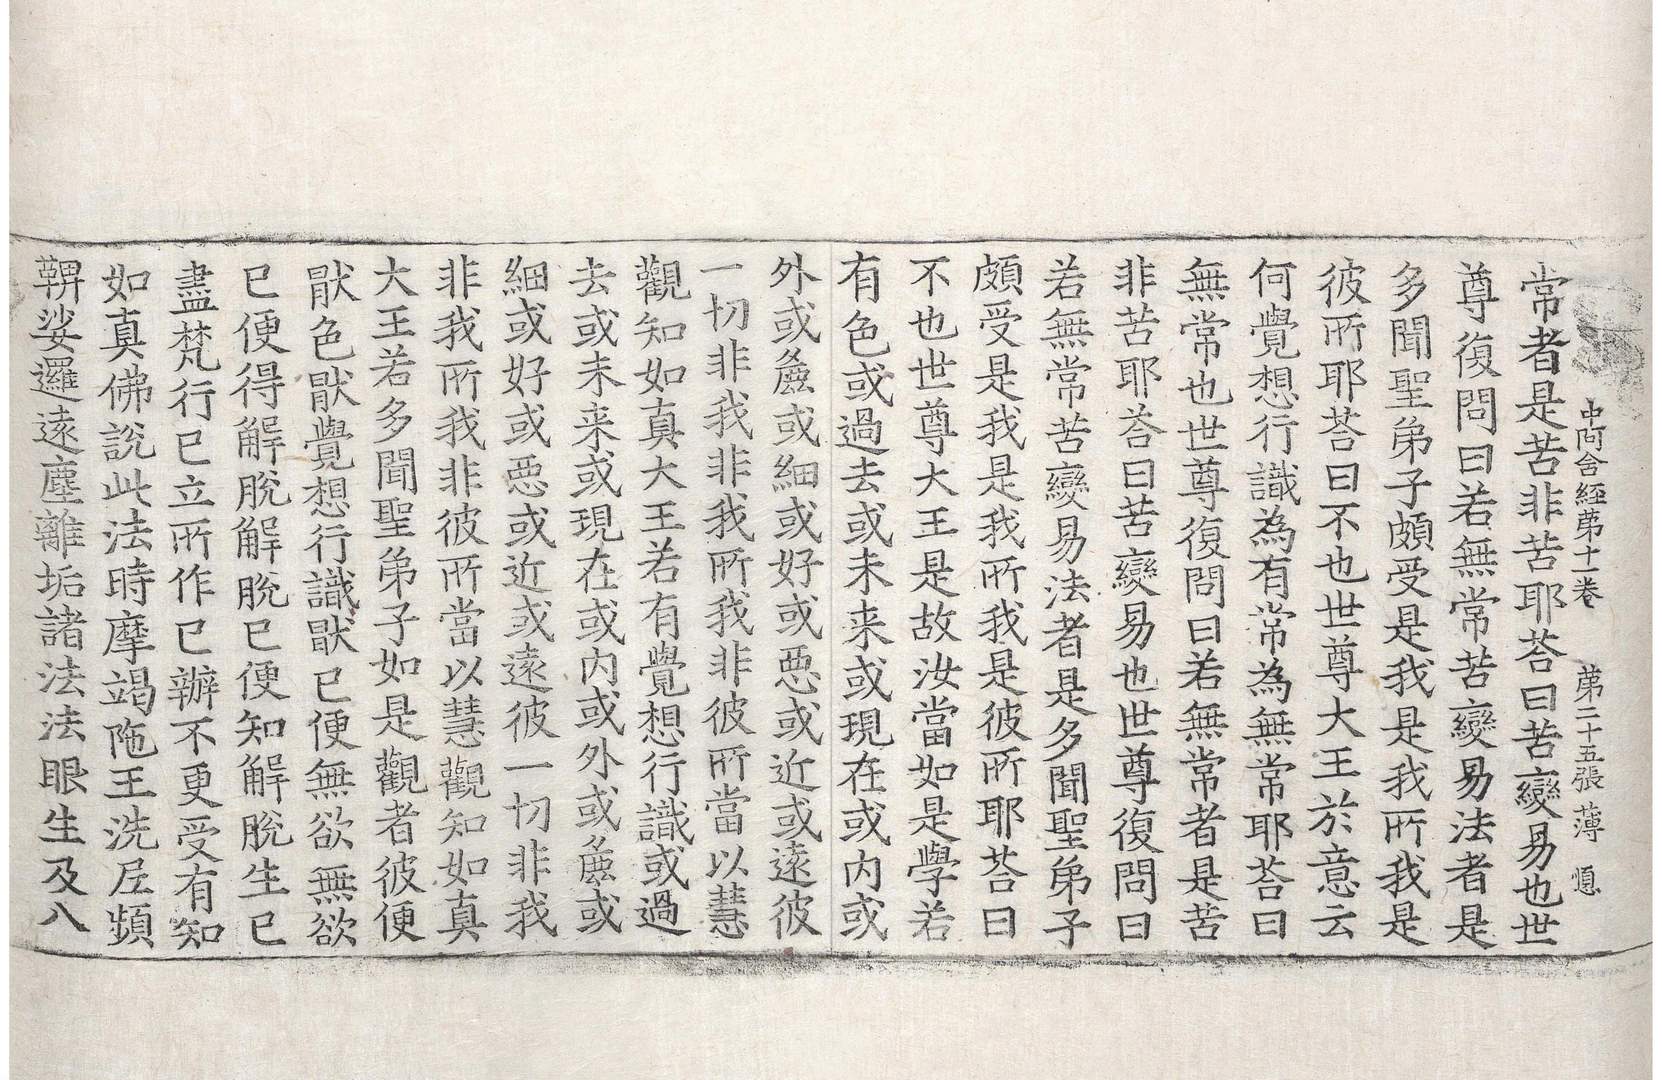 中阿含經苐十一卷　苐二十五張　薄
常者是苦非苦耶荅曰苦變易也世
尊復問曰若無常苦變易法者是
多聞聖弟子頗受是我是我所我是
彼所耶荅曰不也世尊大王於意云
何覺想行識為有常為無常耶荅曰
無常也世尊復問曰若無常者是苦
非苦耶荅曰苦變易也世尊復問曰
若無常苦變易法者是多聞聖弟子
頗受是我是我所我是彼所耶荅曰
不也世尊大王是故汝當如是學若
有色或過去或未来或現在或内或
外或麁或細或好或惡或近或遠彼
一切非我非我所我非彼所當以慧
觀知如真大王若有覺想行識或過
去或未来或現在或内或外或麁或
細或好或惡或近或遠彼一切非我
非我所我非彼所當以慧觀知如真
大王若多聞聖弟子如是觀者彼便
猒色猒覺想行識猒已便無欲無欲
已便得解脫解脫已便知解脫生已
盡梵行已立所作已辦不更受有知
如真佛說此法時摩竭陁王洗尼頻
鞞娑邏遠塵離垢諸法法眼生及八